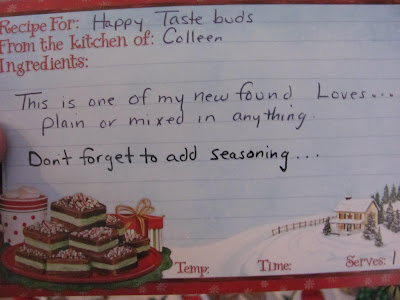 Recipe For: Happy Taste buds
From the kitchen of: Colleen
Ingredients:
This is one of my new found Loves...
plain or mixed in anything.
Don't forget to add seasoning...
Temp: Time: Serves: 1